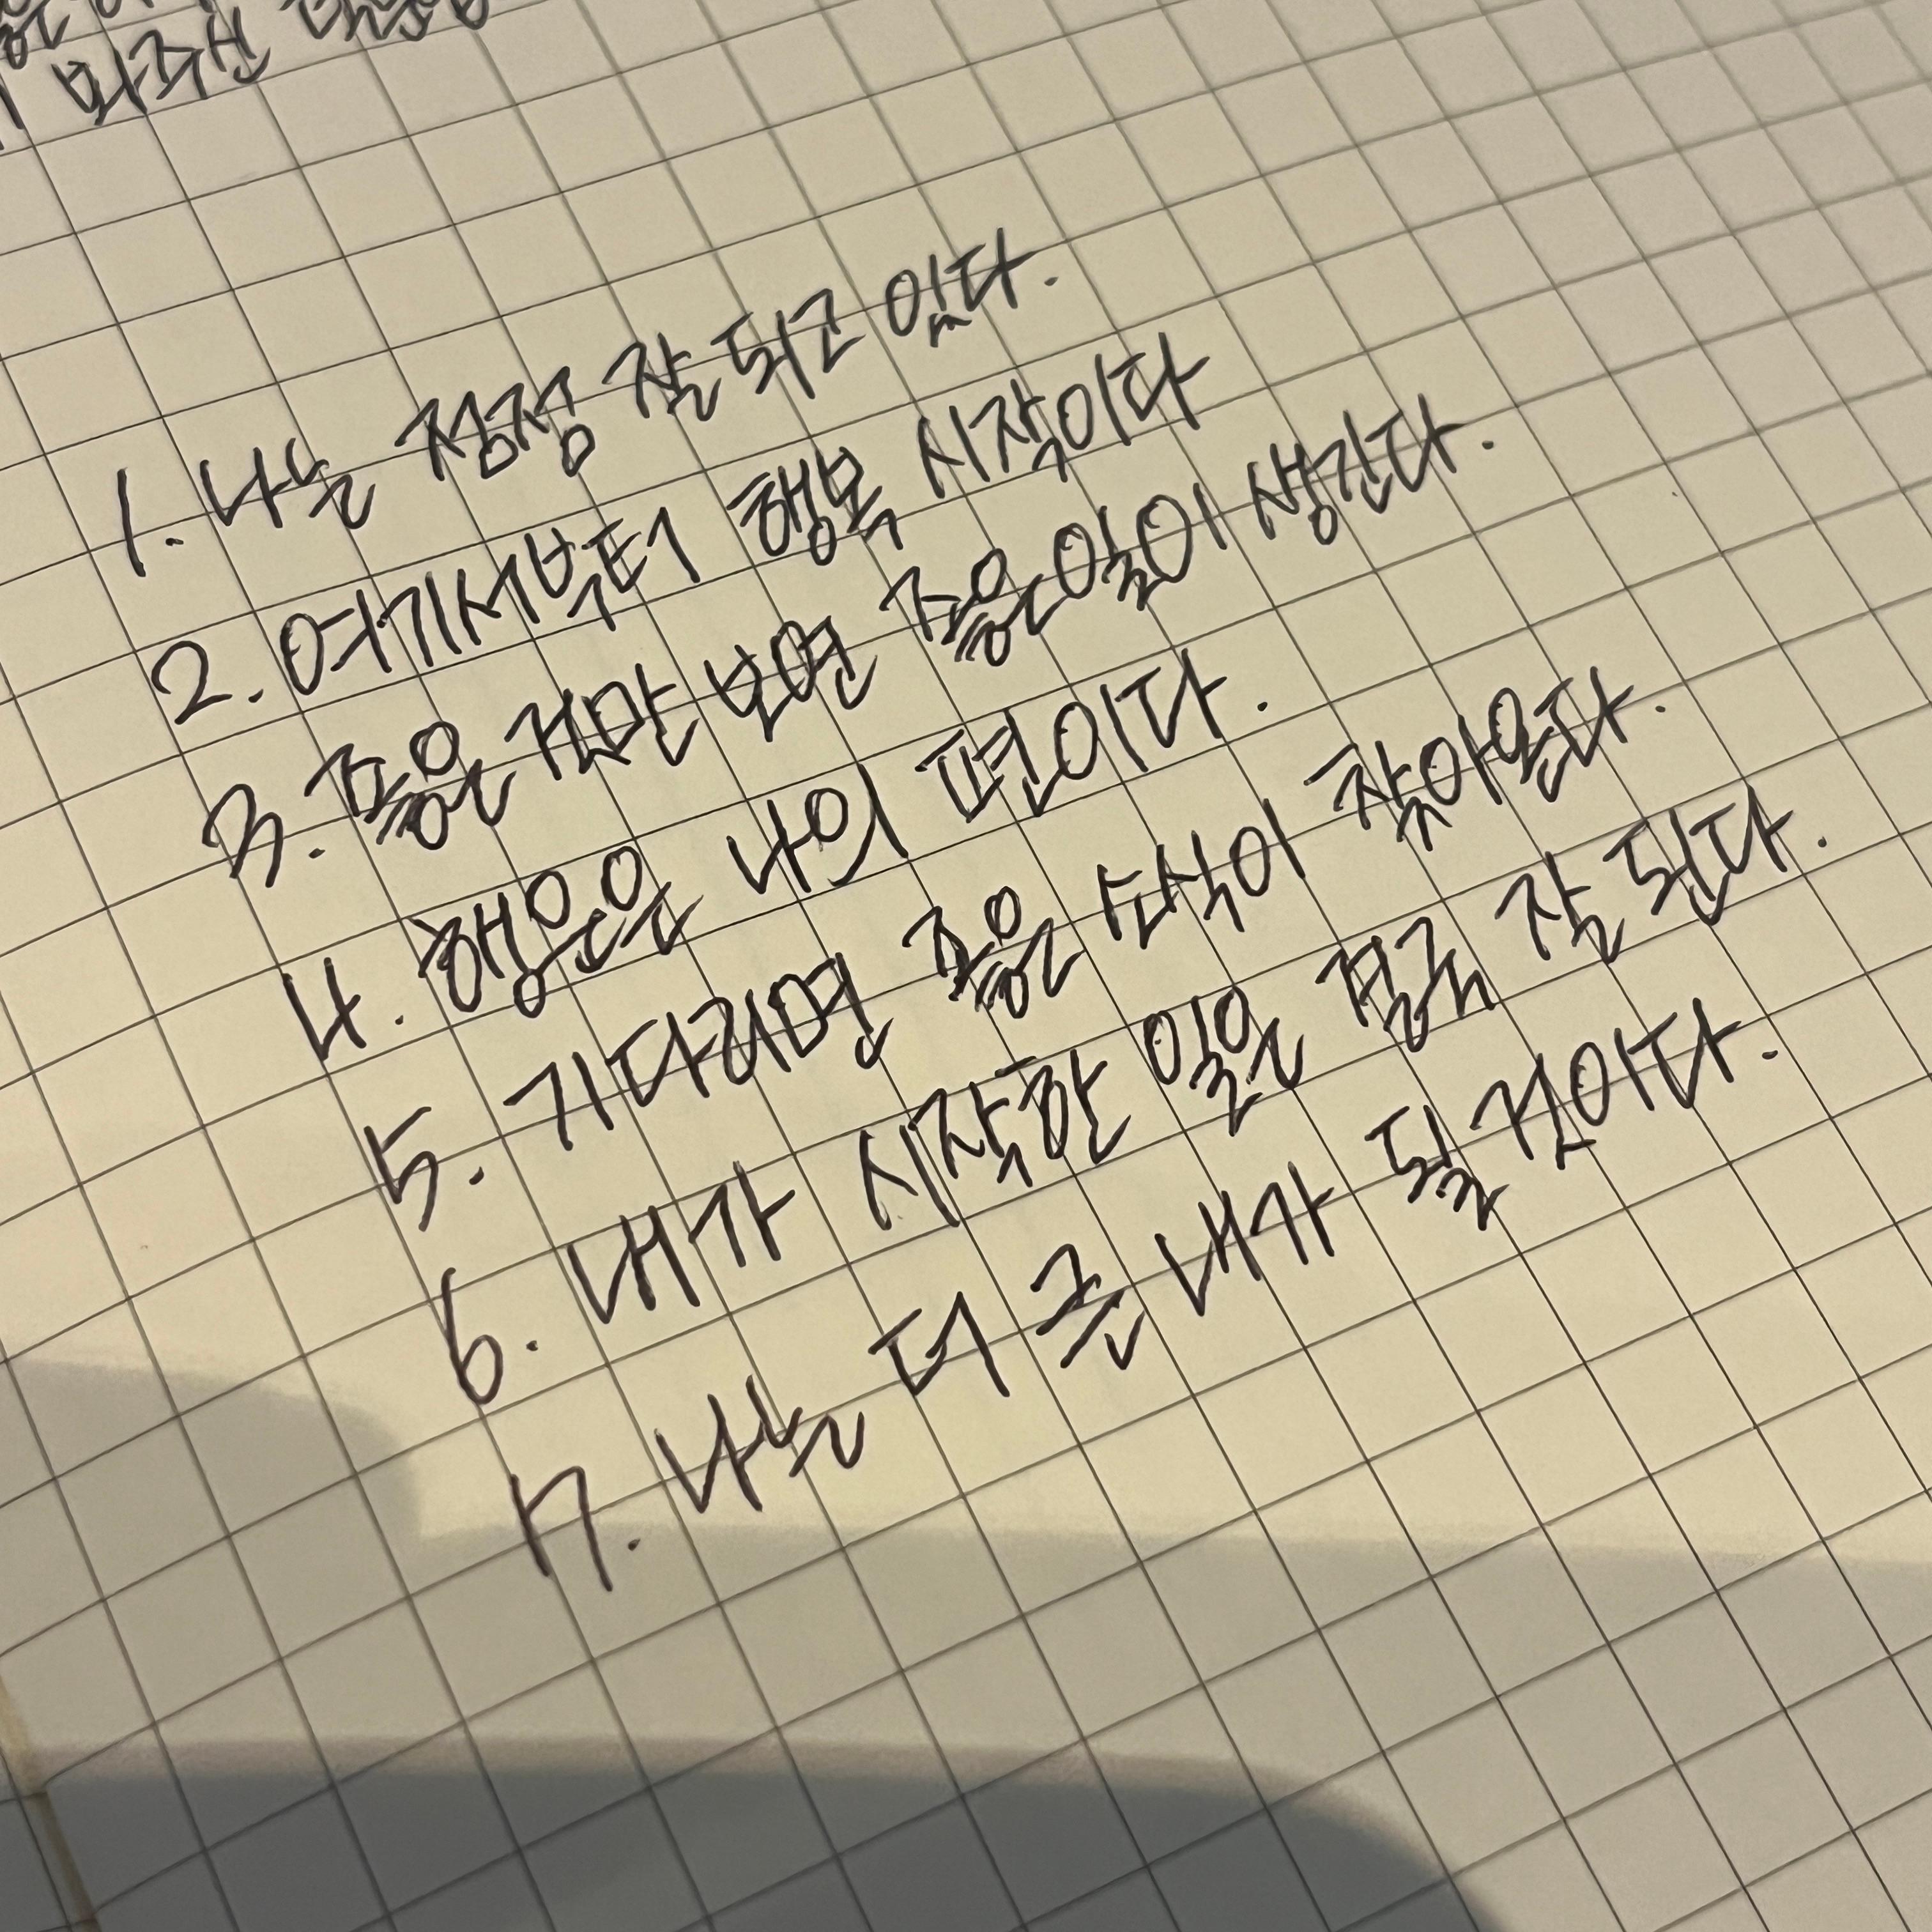 봐주신
1. 나는 점점 잘 되고 있다.
2. 여기서부터 행복 시작이다
3. 좋은 것만 보면 좋은일이 생긴다.
4. 행운은 나의 편이다.
5. 기다리면 좋은 소식이 찾아온다.
6. 내가 시작한 일은 결국 잘 된다.
7. 나는 더 큰 내가 될 것이다.